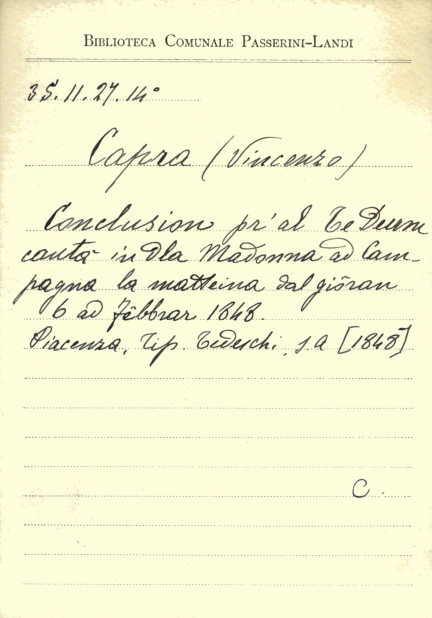 BIBLIOTECA COMUNALE PASSERINI-LANDI
35.11.27.14°
Capra (Vincenzo)
Conclusion pr'al Te Deum
cantà in Dla Madonna ad Cam-
pagna la matteina dal giōran
6 ad Febbrar 1848.
Piacenza, Tip. Tedeschi, s.a [1848]
C.